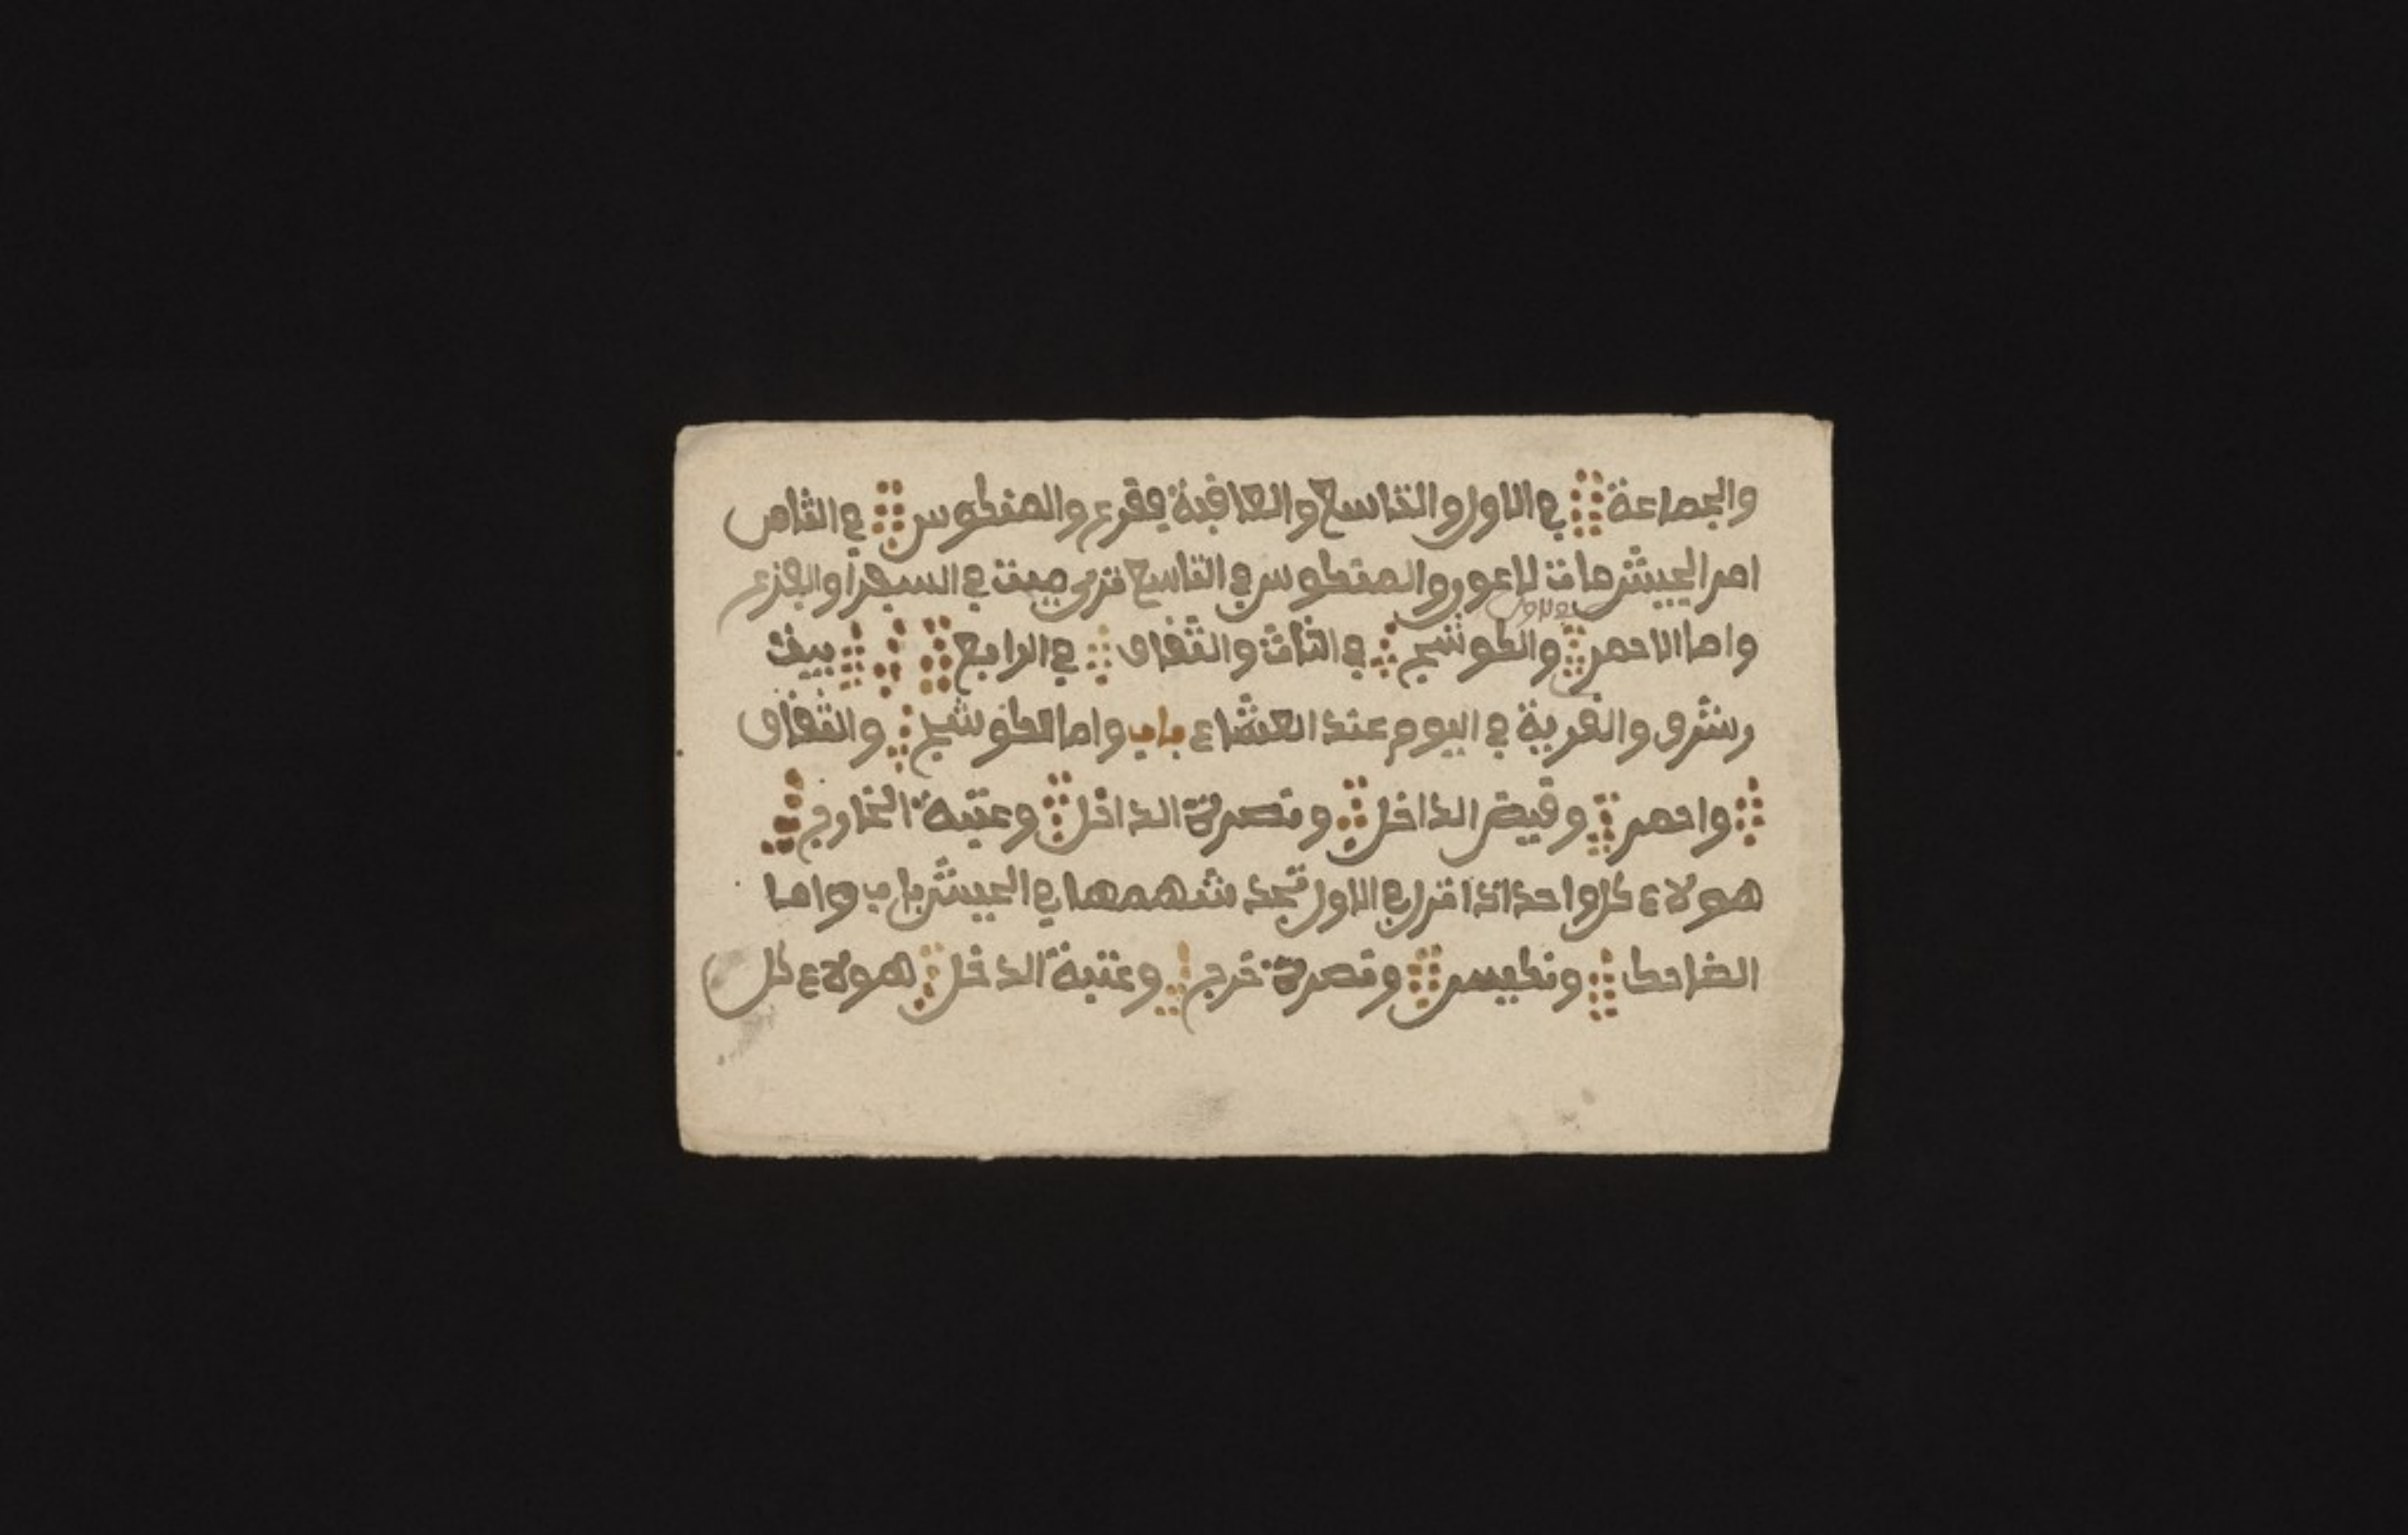 والجماعة في الاول والتاسع والعافية يقرع والمنكوس في الثامن
امر الجيش مات لاعور والمنكوس في التاسع ترى ميت في السفر او الفزع
واما الاحمر والكوشج في الثالث والثقاف في الرابع بيت
رشرق والقرية في اليوم عند العشاء باب واما الكوشج والثقاف
واحمر وقيض الداخل ونصرة الداخل وعتبة الخارج
هولاء كل واحد اذا انزل في الاول تجد شهمها في الجيش باب واما
الضاحك ونكيس ونصرة خرج وعتبة الدخل هولاء كل